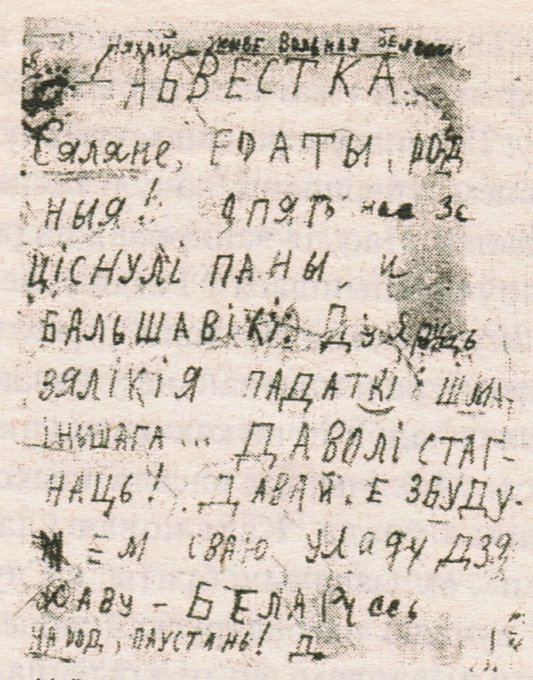 Няхай жыве Вольная
АБВЕСТКА
Сяляне, БРАТЫ, РОД
НЫЯ! ОПЯТЬ нас За
ЦІСНУЛІ ПАНЫ, и
БАЛЬШАВІКІ.
ВЯЛІКІЯ ПАДАТКІ І ШМА-
ІНШАГА... ДАВОЛІ СТАГ-
НАЦЬ! ДАВАЙ.Е ЗБУДУ-
ЕМ СВАЮ УЛаДУ ДЗЯ
ЖАВУ - БЕЛАРусь
НАРОД, ПАУСТАНЬ!